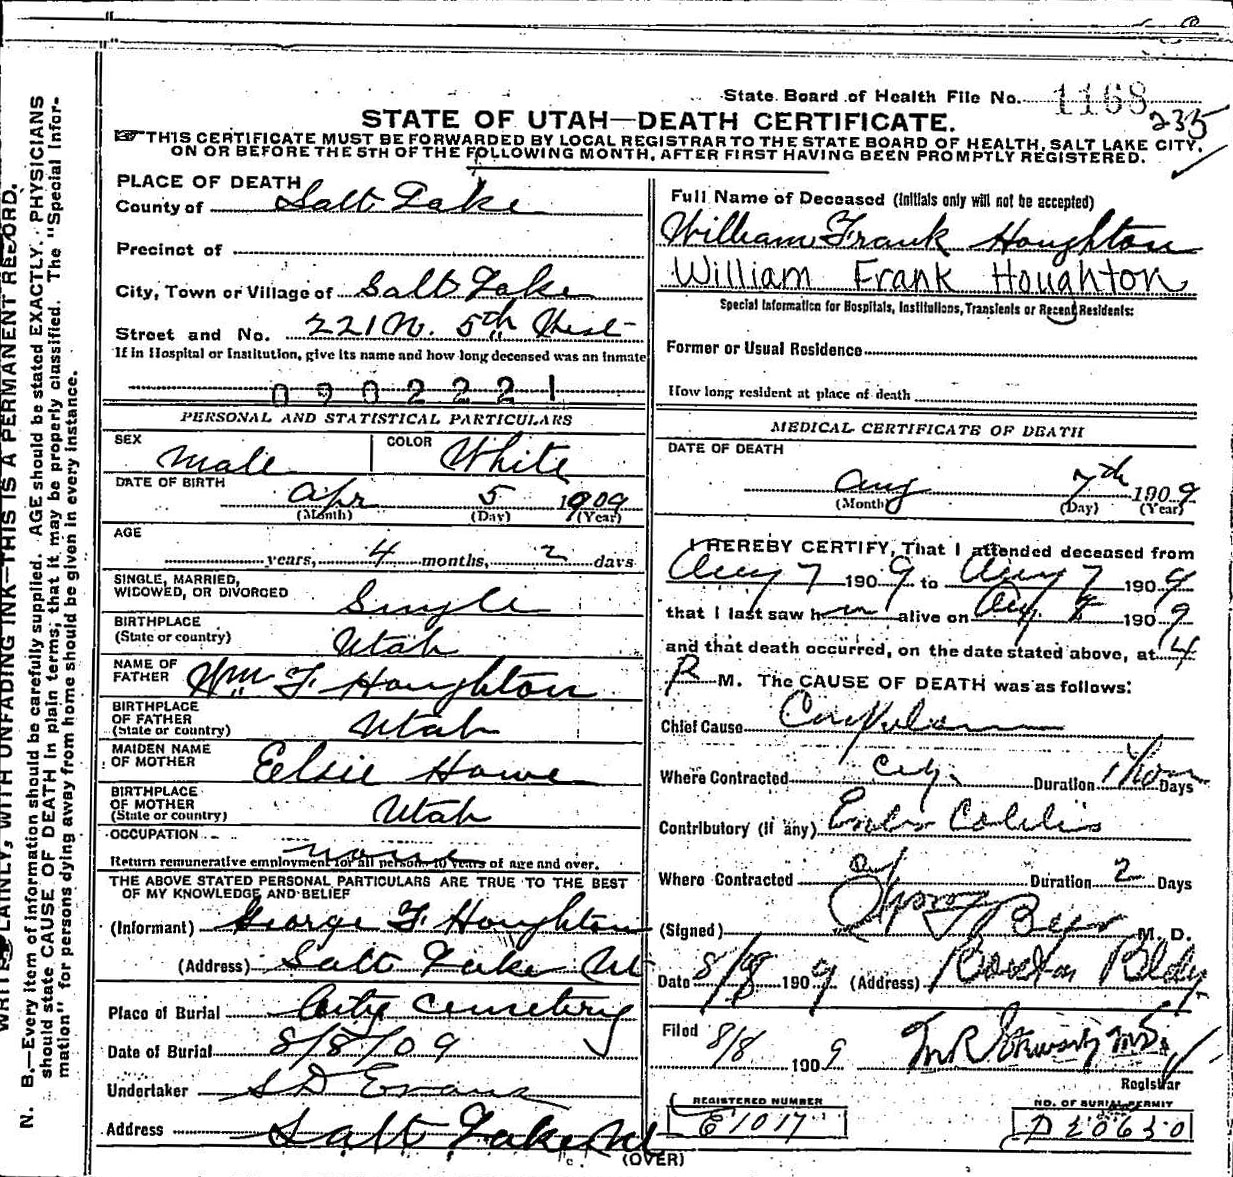 State Board of Health File No. 1168
235
STATE OF UTAH—DEATH CERTIFICATE.
☞THIS CERTIFICATE MUST BE FORWARDED BY LOCAL REGISTRAR TO THE STATE BOARD OF HEALTH, SALT LAKE CITY,
ON OR BEFORE THE 5TH OF THE FOLLOWING MONTH, AFTER FIRST HAVING BEEN PROMPTLY REGISTERED.
WRITE PLAINLY, WITH UNFADING INK—THIS IS A PERMANENT RECORD.
N. B.—Every item of information should be carefully supplied. AGE should be stated EXACTLY. PHYSICIANS
should state CAUSE OF DEATH in plain terms, that it may be properly classified. The "Special Infor-
mation" for persons dying away from home should be given in every instance.
PLACE OF DEATH
County of Salt Lake
Precinct of
City, Town or Village of Salt Lake
Street and No. 221 N. 5th West
If in Hospital or Institution, give its name and how long deceased was an inmate
0902221
PERSONAL AND STATISTICAL PARTICULARS
SEX Male COLOR White
DATE OF BIRTH Apr 5 1909
(Month) (Day) (Year)
AGE
years, 4 months, 2 days
SINGLE, MARRIED,
WIDOWED, OR DIVORCED Single
BIRTHPLACE
(State or country) Utah
NAME OF
FATHER Wm F Houghton
BIRTHPLACE
OF FATHER
(State or country) Utah
MAIDEN NAME
OF MOTHER Elsie Howe
BIRTHPLACE
OF MOTHER
(State or country) Utah
OCCUPATION none
Return remunerative employment for all persons 10 years of age and over.
THE ABOVE STATED PERSONAL PARTICULARS ARE TRUE TO THE BEST
OF MY KNOWLEDGE AND BELIEF
(Informant) George F Houghton
(Address) Salt Lake Ut
Place of Burial City Cemetery
Date of Burial 8/8/09
Undertaker S D Evans
Address Salt Lake Ut
(OVER)
Full Name of Deceased (Initials only will not be accepted)
William Frank Houghton
William Frank Houghton
Special Information for Hospitals, Institutions, Transients or Recent Residents:
Former or Usual Residence
How long resident at place of death
MEDICAL CERTIFICATE OF DEATH
DATE OF DEATH
Aug 7th 1909
(Month) (Day) (Year)
I HEREBY CERTIFY, That I attended deceased from
Aug 7 1909 to Aug 7 1909
that I last saw him alive on Aug. 1909
and that death occurred, on the date stated above, at 4
P M. The CAUSE OF DEATH was as follows:
Chief Cause
Where Contracted City Duration Days
Contributory (if any) Entero Colitis
Where Contracted Duration 2 Days
(Signed) M. D.
Date 8/8 1909 (Address) Boston Bldg
Filed 8/8 1909 M R Stewart, MD.
Registrar
REGISTERED NUMBER
E1017
NO. OF BURIAL PERMIT